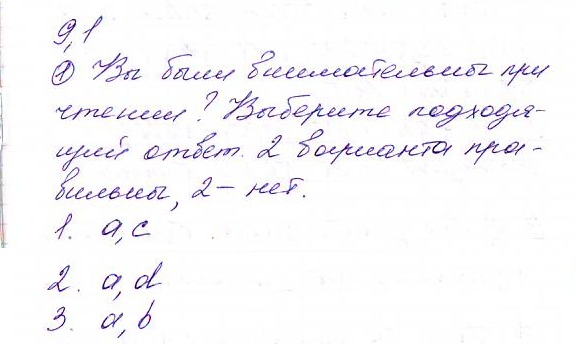 9,1
① Вы были внимательны при
чтении? Выберите подходя-
щий ответ. 2 варианта пра-
вильны, 2 – нет.
1. a, c
2. a, d
3. a, b